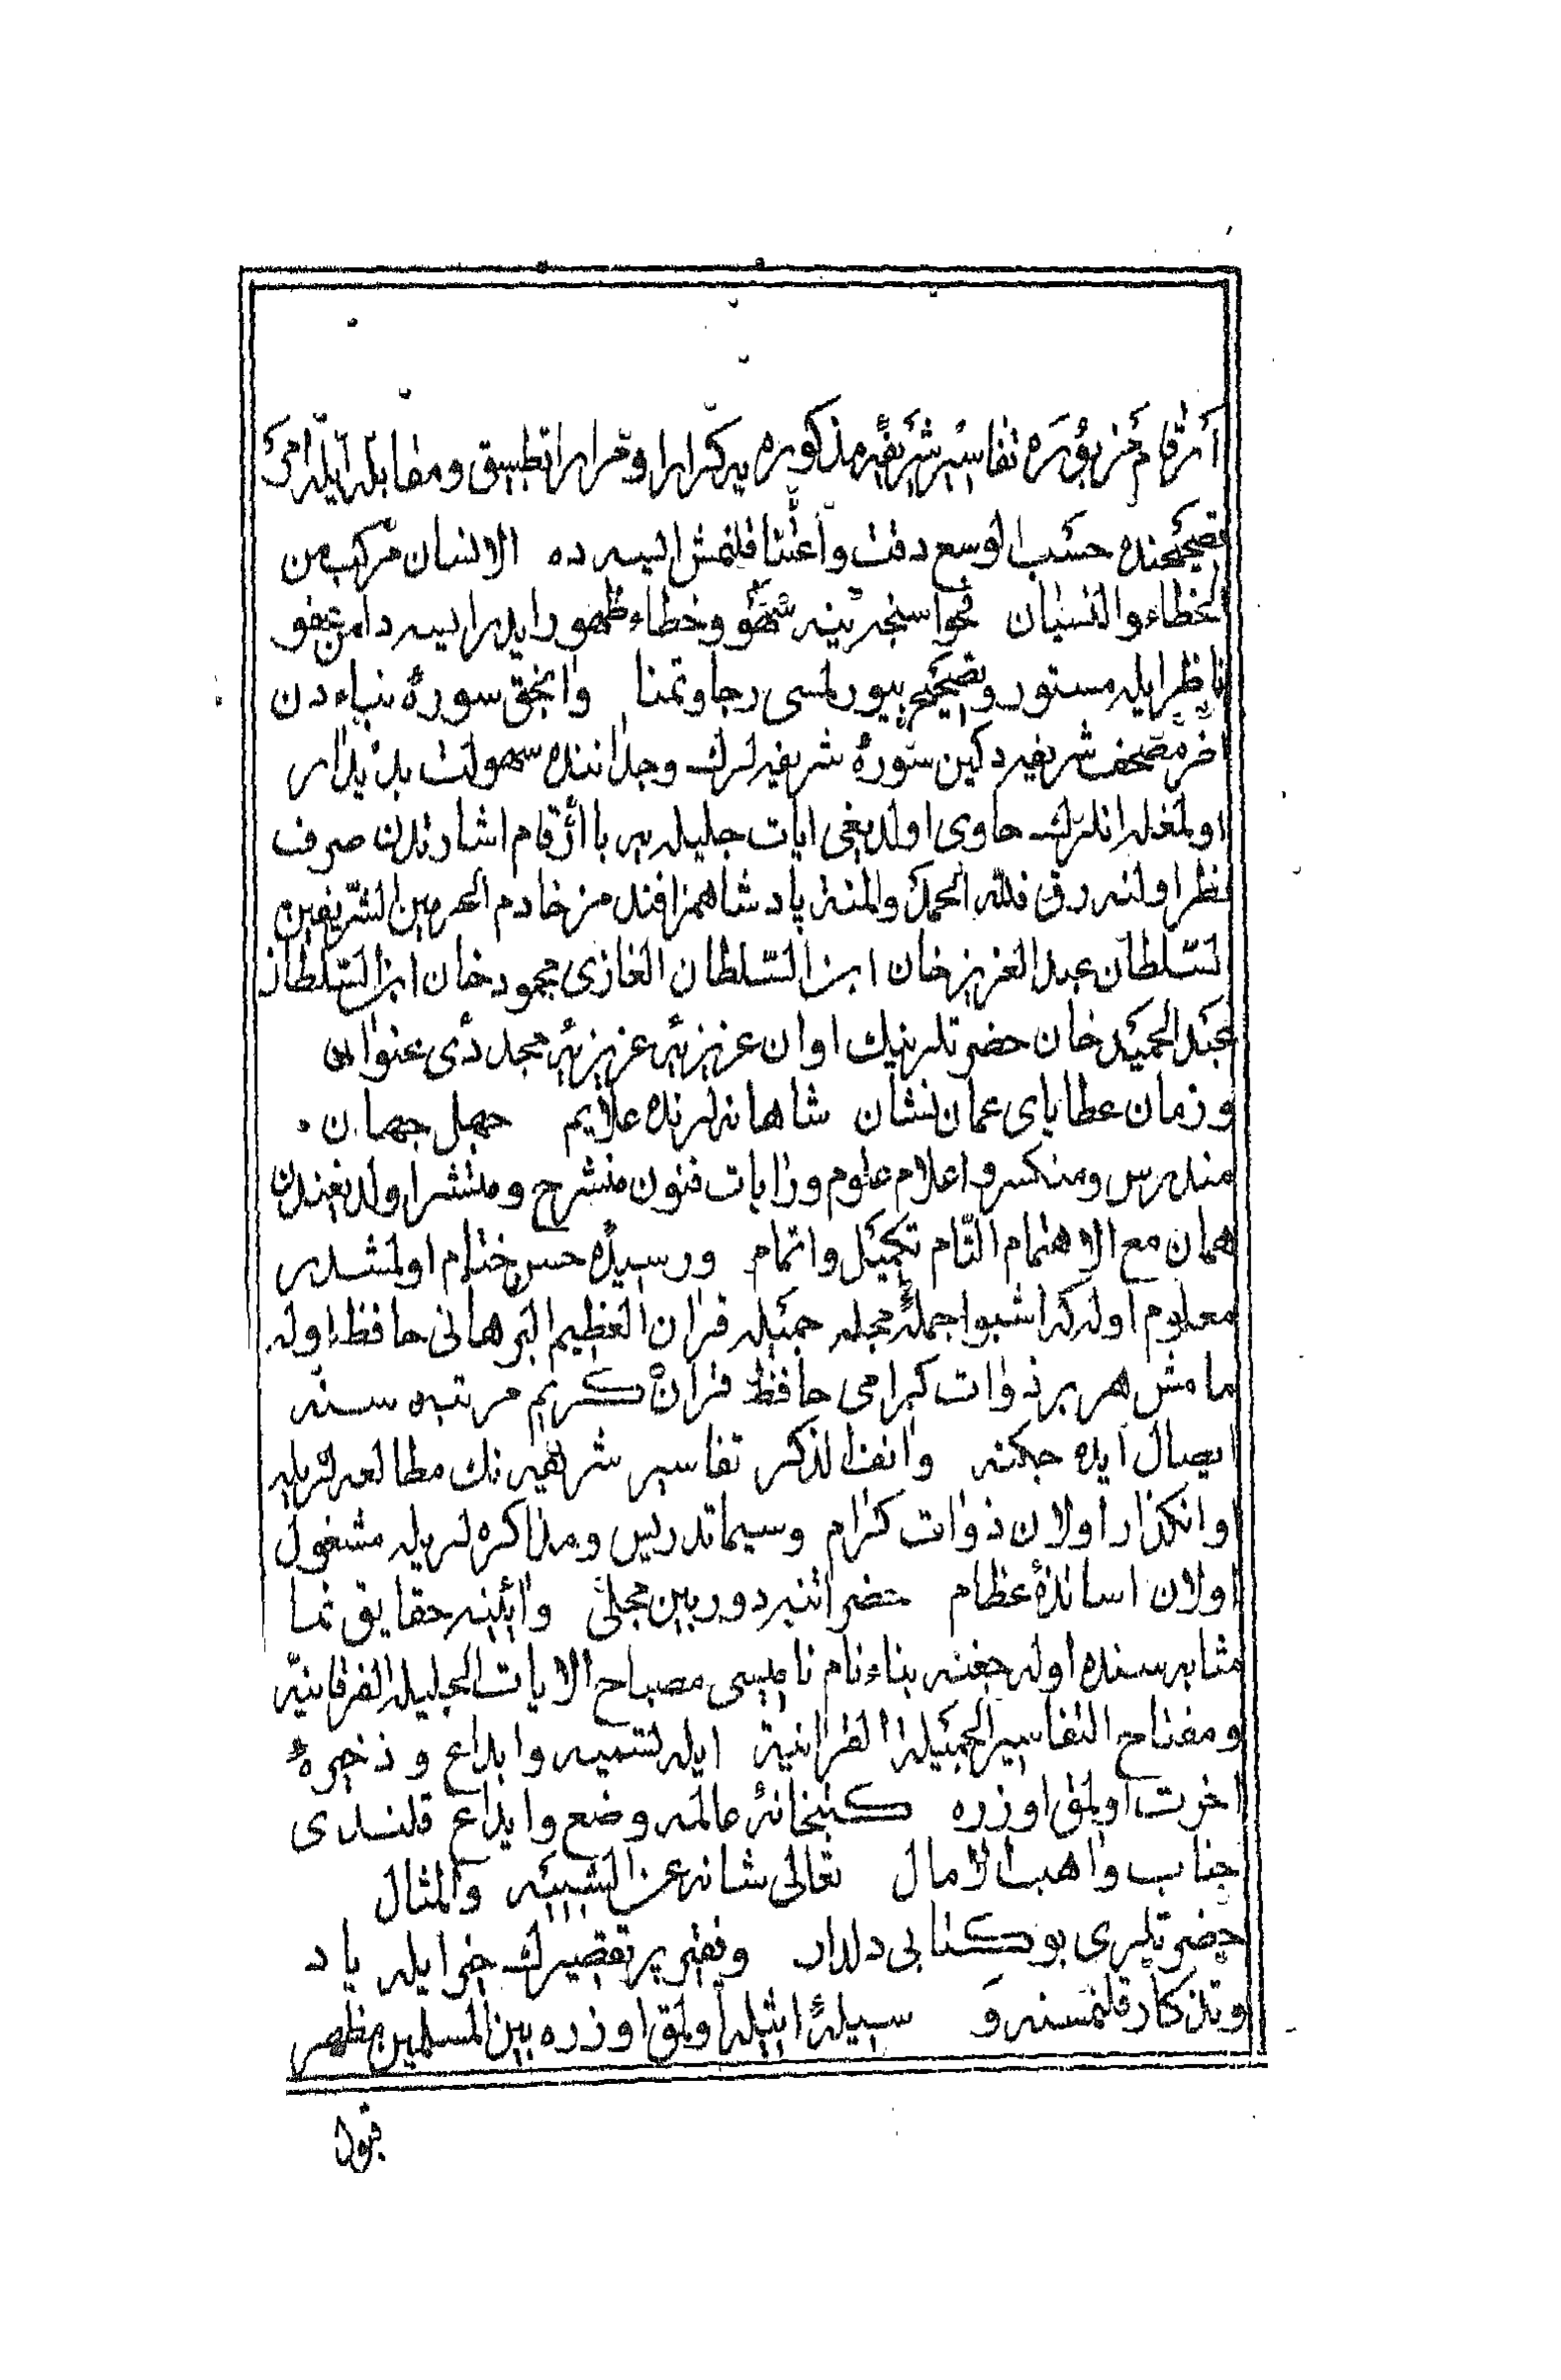 ارقام مزبوره تفاسير شريفۀ مذكوره يه كرارا و مرارا تطبيق و مقابله ايله امر
تصحيحنده حسب الوسع دقت واعتنا قلنمش ايسه ده الانسان مركب من
الخطاء والنسيان فحواسنجه ينه سهو وخطاء ظهور ايدر ايسه دامن عفو
ناظر ايله مستور وتصحيح بيورلمسى رجا وتمنا وانجق سورۀ نباء دن
اخر مصحف شريفه دكين سورۀ شريفه لرك وجداننده سهولت بديدار
اولمغله انلرك حاوى اولديغى ايات جليله يه با ارقام اشارتدن صرف
نظر اولنه رق فلله الحمد والمنة پادشاهمز افندمز خادم الحرمين الشريفين
السلطان عبد العزيز خان ابن السلطان الغازى محمود خان ابن السلطان
عبد الحميد خان حضرتلرينك اوان عزيزيۀ عزيزيۀ مجددى عنوان
وزمان عطاياى عمان نشان شاهانه لرنده علايم جهل جهان
مندرس ومنكسر و اعلام علوم ورايات فنون منشرح ومنتشر اولديغندن
همان مع الاهتمام التام تكميل واتمام ورسيدۀ حسن ختام اولمشدر
معلوم اوله كه اشبو اجملۀ مجله جميله قران العظيم البرهانى حافظ اوله
مامش هر بر ذوات كرامى حافظ قران كريم مرتبه سنه
ايصال ايده جكنه وانف الذكر تفاسير شريفه نك مطالعه لريله
وانكذار اولان ذوات كرام وسيما تدريس ومذاكره لريله مشغول
اولان اساتذۀ عظام حضراتنه دوربين مجلى وائينه حقايق نما
مثابه سنده اوله جغنه بناء نام ناميسى مصباح الايات الجليلة الفرقانية
ومفتاح التفاسير الجميلة القرانية ايله تسميه وابداع و ذخيرۀ
اخرت اولمق اوزره كتبخانۀ عالمه وضع وايداع قلندى
جناب واهب الامال تعالى شانه عن الشبيه والمثال
حضرتلرى بو كتابى دلدار وفقير پر تقصيرك خير ايله ياد
وتذكار قلنمسنه و سيلۀ اثيله اولمق اوزره بين المسلمين مظهر
قبول